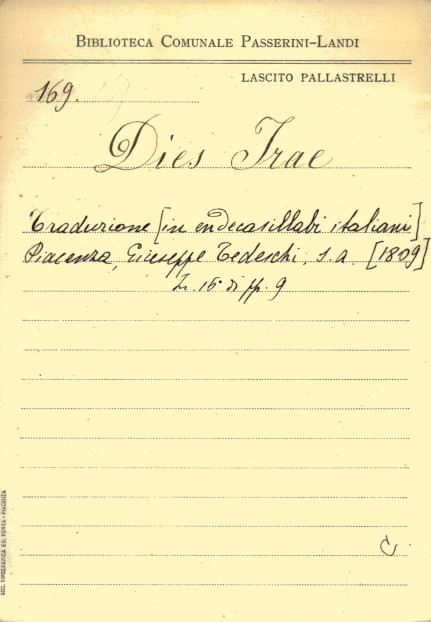 BIBLIOTECA COMUNALE PASSERINI-LANDI
LASCITO PALLASTRELLI
169.
Dies Irae
Traduzione [in endecasillabi italiani]
Piacenza, Giuseppe Tedeschi, s.a. [1809]
di pp. 9
SOC. TIPOGRAFICA ED. PORTA - PIACENZA